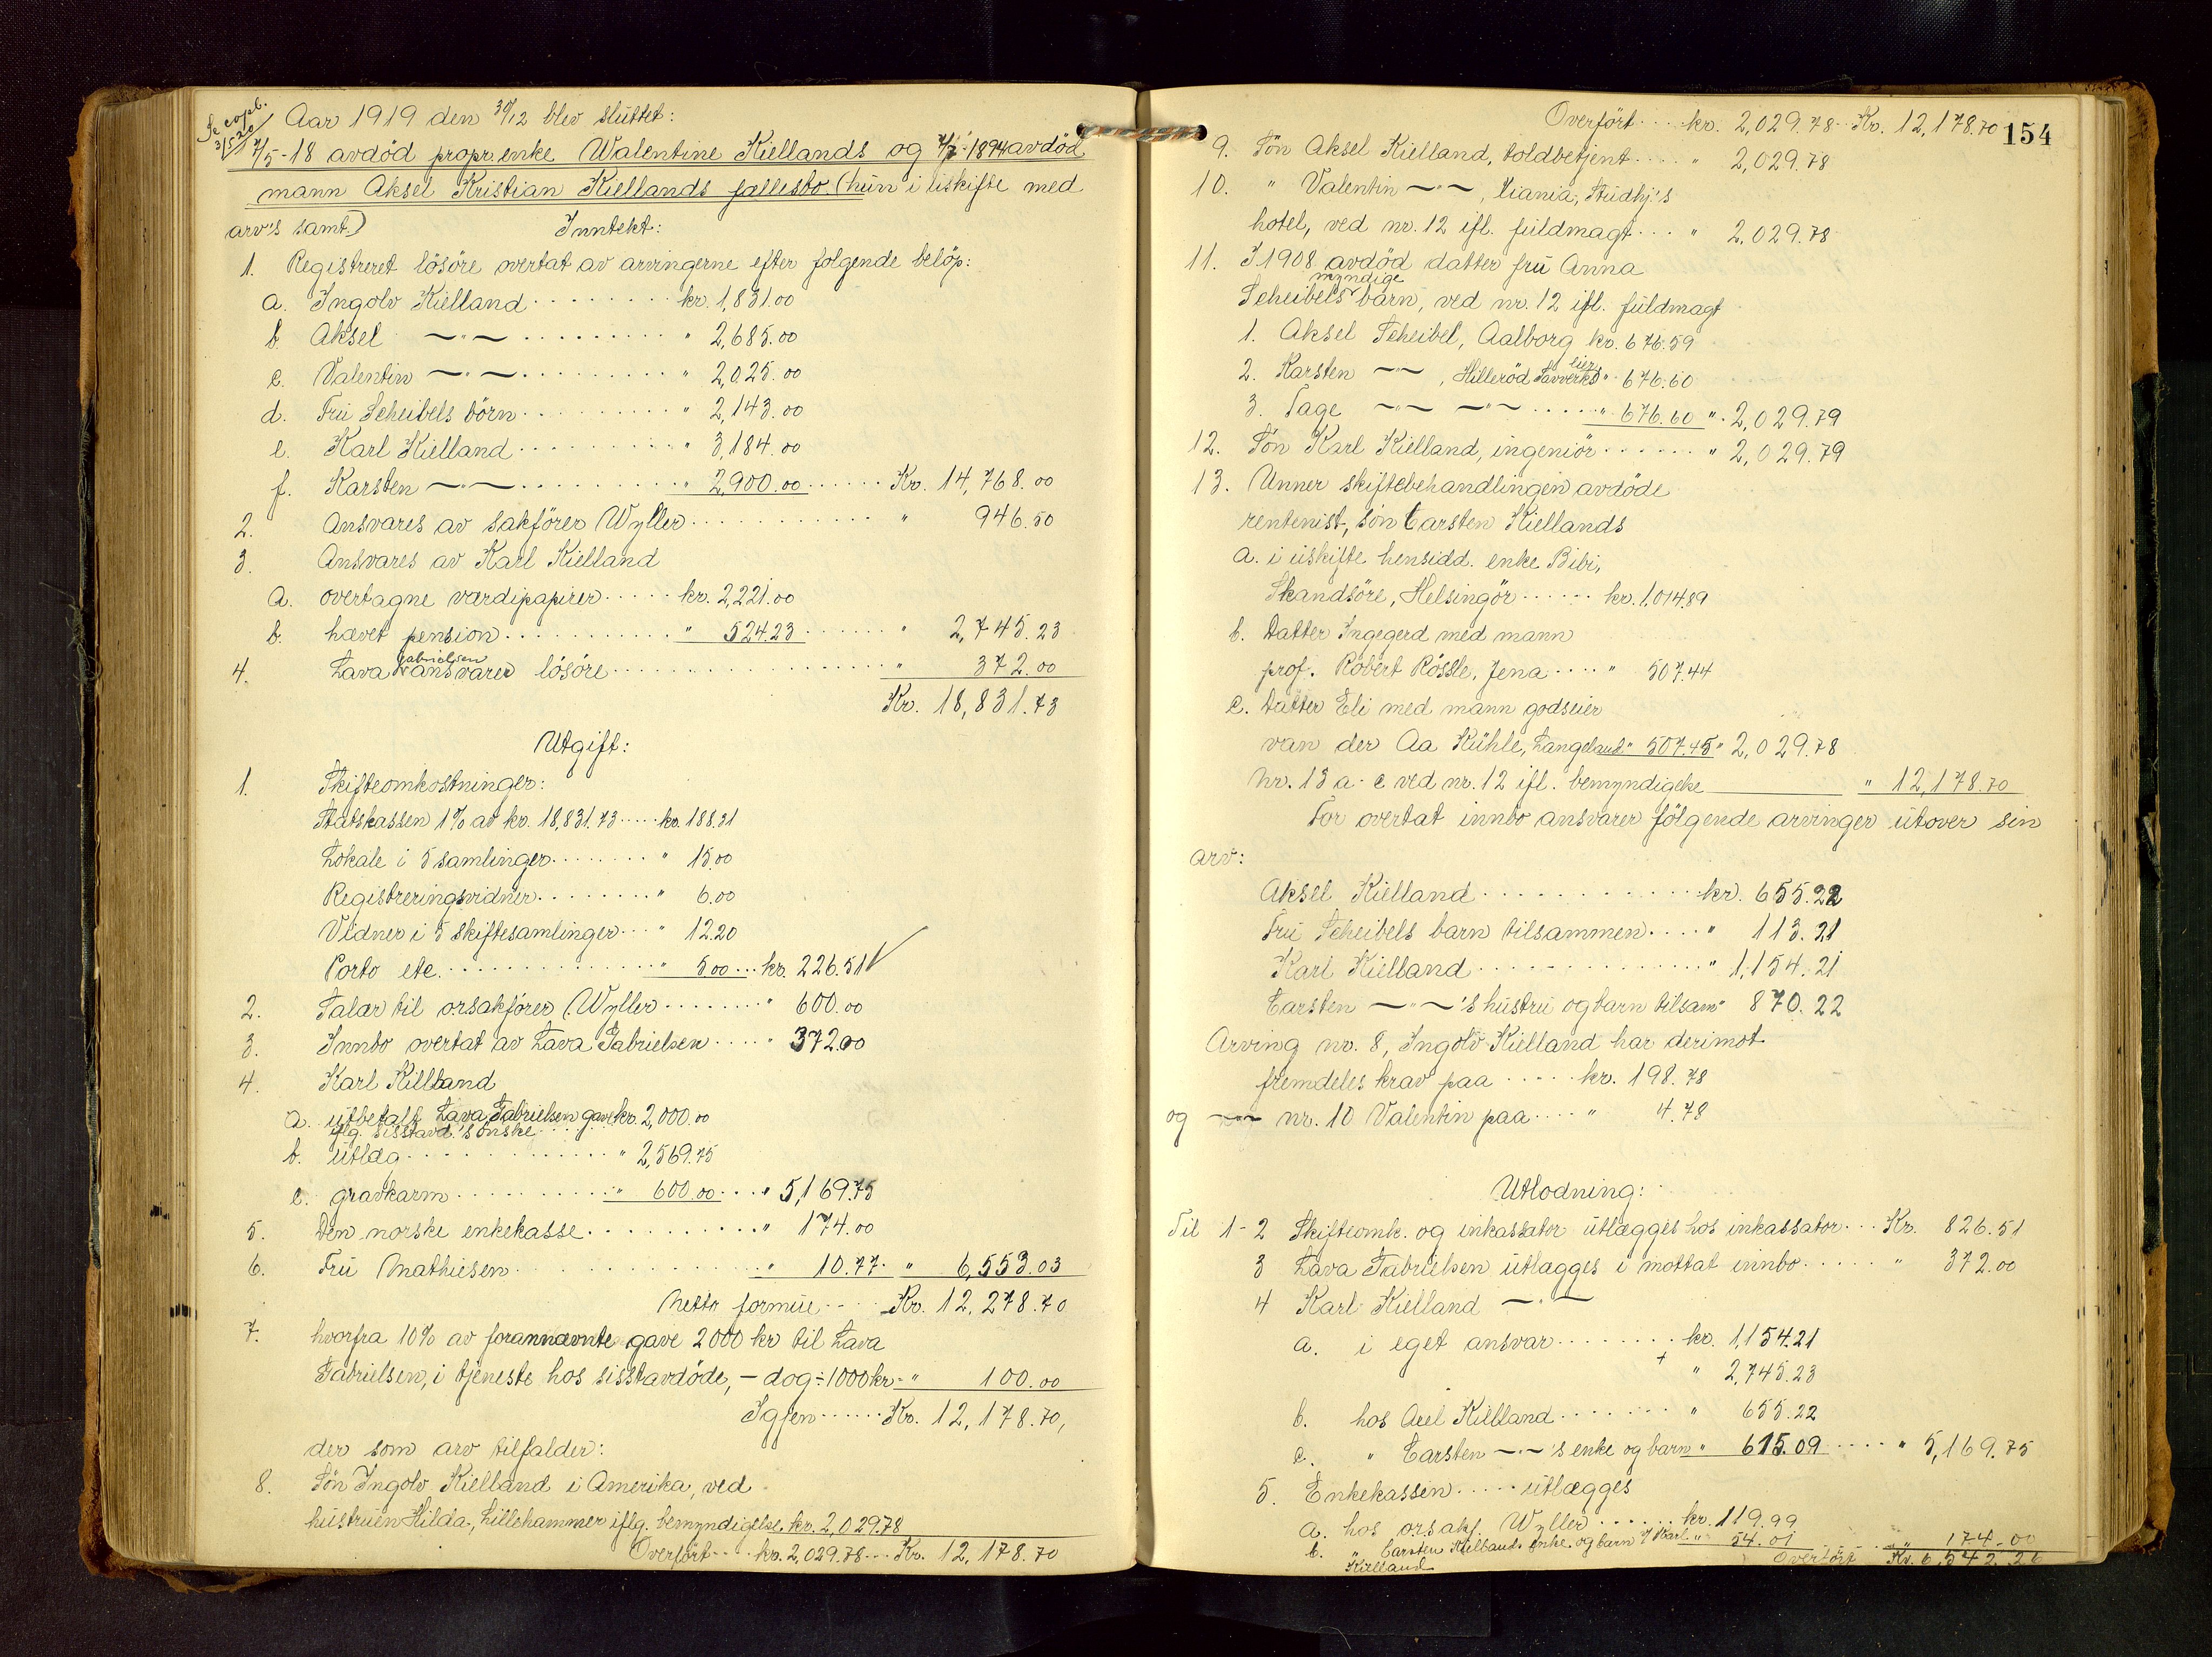 Se copb.
3/5 20
Aar 1919 den 30/12 blev sluttet:
7/5-18 avdöd propr. enke Walentine Kiellands og 4/7 1894 avdöd
mann Aksel Kristian Kiellands fællesbo. (hun i uskifte med
arv's samt.)
Inntekt:
1. Registreret lösöre overtat av arvingerne efter folgende belöp:
a. Ingolv Kielland ........ kr. 1,831.00
b. Aksel —"— ......... " 2,685.00
c. Valentin —"— ......... " 2,025.00
d. Fru Scheibels börn ......... " 2,143.00
e. Karl Kielland ......... " 3,184.00
f. Karsten —"— ......... " 2,900.00 ...... Kr. 14,768.00
2. Ansvares av sakförer Wyller ............ " 946.50
3. Ansvares av Karl Kielland
a. overtagne værdipapirer ..... kr. 2,221.00
b. hævet pension .......... " 524.23 ...... " 2,745.23
4. Lava Gabrielsen ansvarer lösöre ................ " 372.00
Kr. 18,831.73
Utgift:
1. Skifteomkostninger:
Statskassen 1% av kr. 18,831.73 ..... kr. 188.31
Lokale i 5 samlinger ........ " 15.00
Registreringsvidner ........ " 6.00
Vidner i 5 skiftesamlinger ... " 12.20
Porto etc. ............. " 5.00 ... kr. 226.51 √
2. Salær til orsakförer Wyller ........ " 600.00
3. Innbo overtat av Lava Gabrielsen ..... " 372.00
4. Karl Killland
a. utbetalt Lava Gabrielsen gave kr. 2,000.00
iflg. sisstavd.'s önske
b. utlæg ............ " 2,569.75
c. gravkarm .......... " 600.00 ... " 5,169.75
5. Den norske enkekasse .......... " 174.00
6. Fru Mathiesen .............. " 10.77 " 6,553.03
Netto formue ... Kr. 12,278.70
7. hvorfra 10% av forannævnte gave 2000 kr til Lava
Gabrielsen, i tjeneste hos sisstavdöde, - dog ÷ 1000 kr = " 100.00
Igjen ...... Kr. 12,178.70,
der som arv tilfalder:
8. Sön Ingolv Kielland i Amerika, ved
hustruen Hilda, Lillehammer iflg. bemyndigelse kr. 2,029.78
Overfört .... kr. 2,029.78 ... Kr. 12,178.70
154
Overfört .... kr. 2,029.78 .. Kr. 12,178.70
9. Sön Aksel Kielland, toldbetjent .... " 2,029.78
10. " Valentin —"—, Xiania, Studhj.'s
hotel, ved nr. 12 ifl. fuldmagt ... " 2,029.78
11. I 1908 avdöd datter fru Anna
Scheibels myndige barn, ved nr. 12 ifl. fuldmagt
1. Aksel Scheibel, Aalborg kr. 676.59
2. Karsten —"—, Hilleröd Savverks " 676.60
3. Tage —"— —"— ..... " 676.60 " 2,029.79
12. Sön Karl Kielland, ingeniör ...... " 2,029.79
13. Unner skiftebehandlingen avdöde
rentenist, sön Carsten Kiellands
a. i uskifte hensidd. enke Bibi,
Skandsöre, Helsingör ...... kr. 1,014.89
b. Datter Ingegerd med mann
prof. Robert Rössle, Jena .... " 507.44
c. Datter Eli med mann godseier
van der Aa Kühle, Langeland " 507.45 " 2,029.78
Nr. 13 a - c ved nr. 12 ifl. bemyndigelse " 12,178.70
For overtat innbo ansvarer fölgende arvinger utover sin
arv:
Aksel Kielland ............ kr. 655.22
Fru Scheibels barn tilsammen .... " 113.21
Karl Kielland ............. " 1,154.21
Carsten —"—'s hustru og barn tilsam " 870.22
Arving nr. 8, Ingolv Kielland har derimot
fremdeles krav paa ..... kr. 198.78
og —"— nr. 10 Valentin paa .... " 4.78
Utlodning:
Til 1-2 Skifteomk. og inkassator utlægges hos inkassator ... Kr. 826.51
3 Lava Gabrielsen utlægges i mottat innbo ..... " 372.00
4 Karl Kielland —"—
a. i eget ansvar ........ kr. 1,154.21
+ " 2,745.23
b. hos Axel Kielland ....... " 655.22
c. " Carsten —"—'s enke og barn " 615.09 .... " 5,169.75
5. Enkekassen ..... utlægges
a. hos orsakf. Wyller ...... kr. 119.99
b. " Carsten Kiellands enke og barn v/ Karl " 54.01 .... " 174.00
Kielland
Overfört Kr. 6,542.26